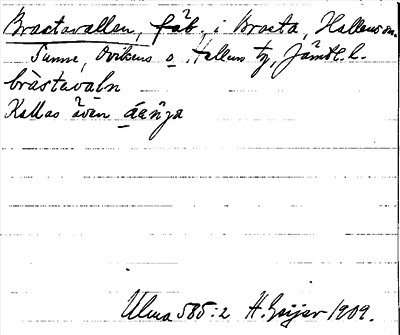 Brastavallen, fäb., i Brasta, Hallens sn.
Sunne, Ovikens o. Hallens tg, Jämtl. l.
bràstavaln
Kallas även áänja
Ulma 585:2 H. Geijer 1909.